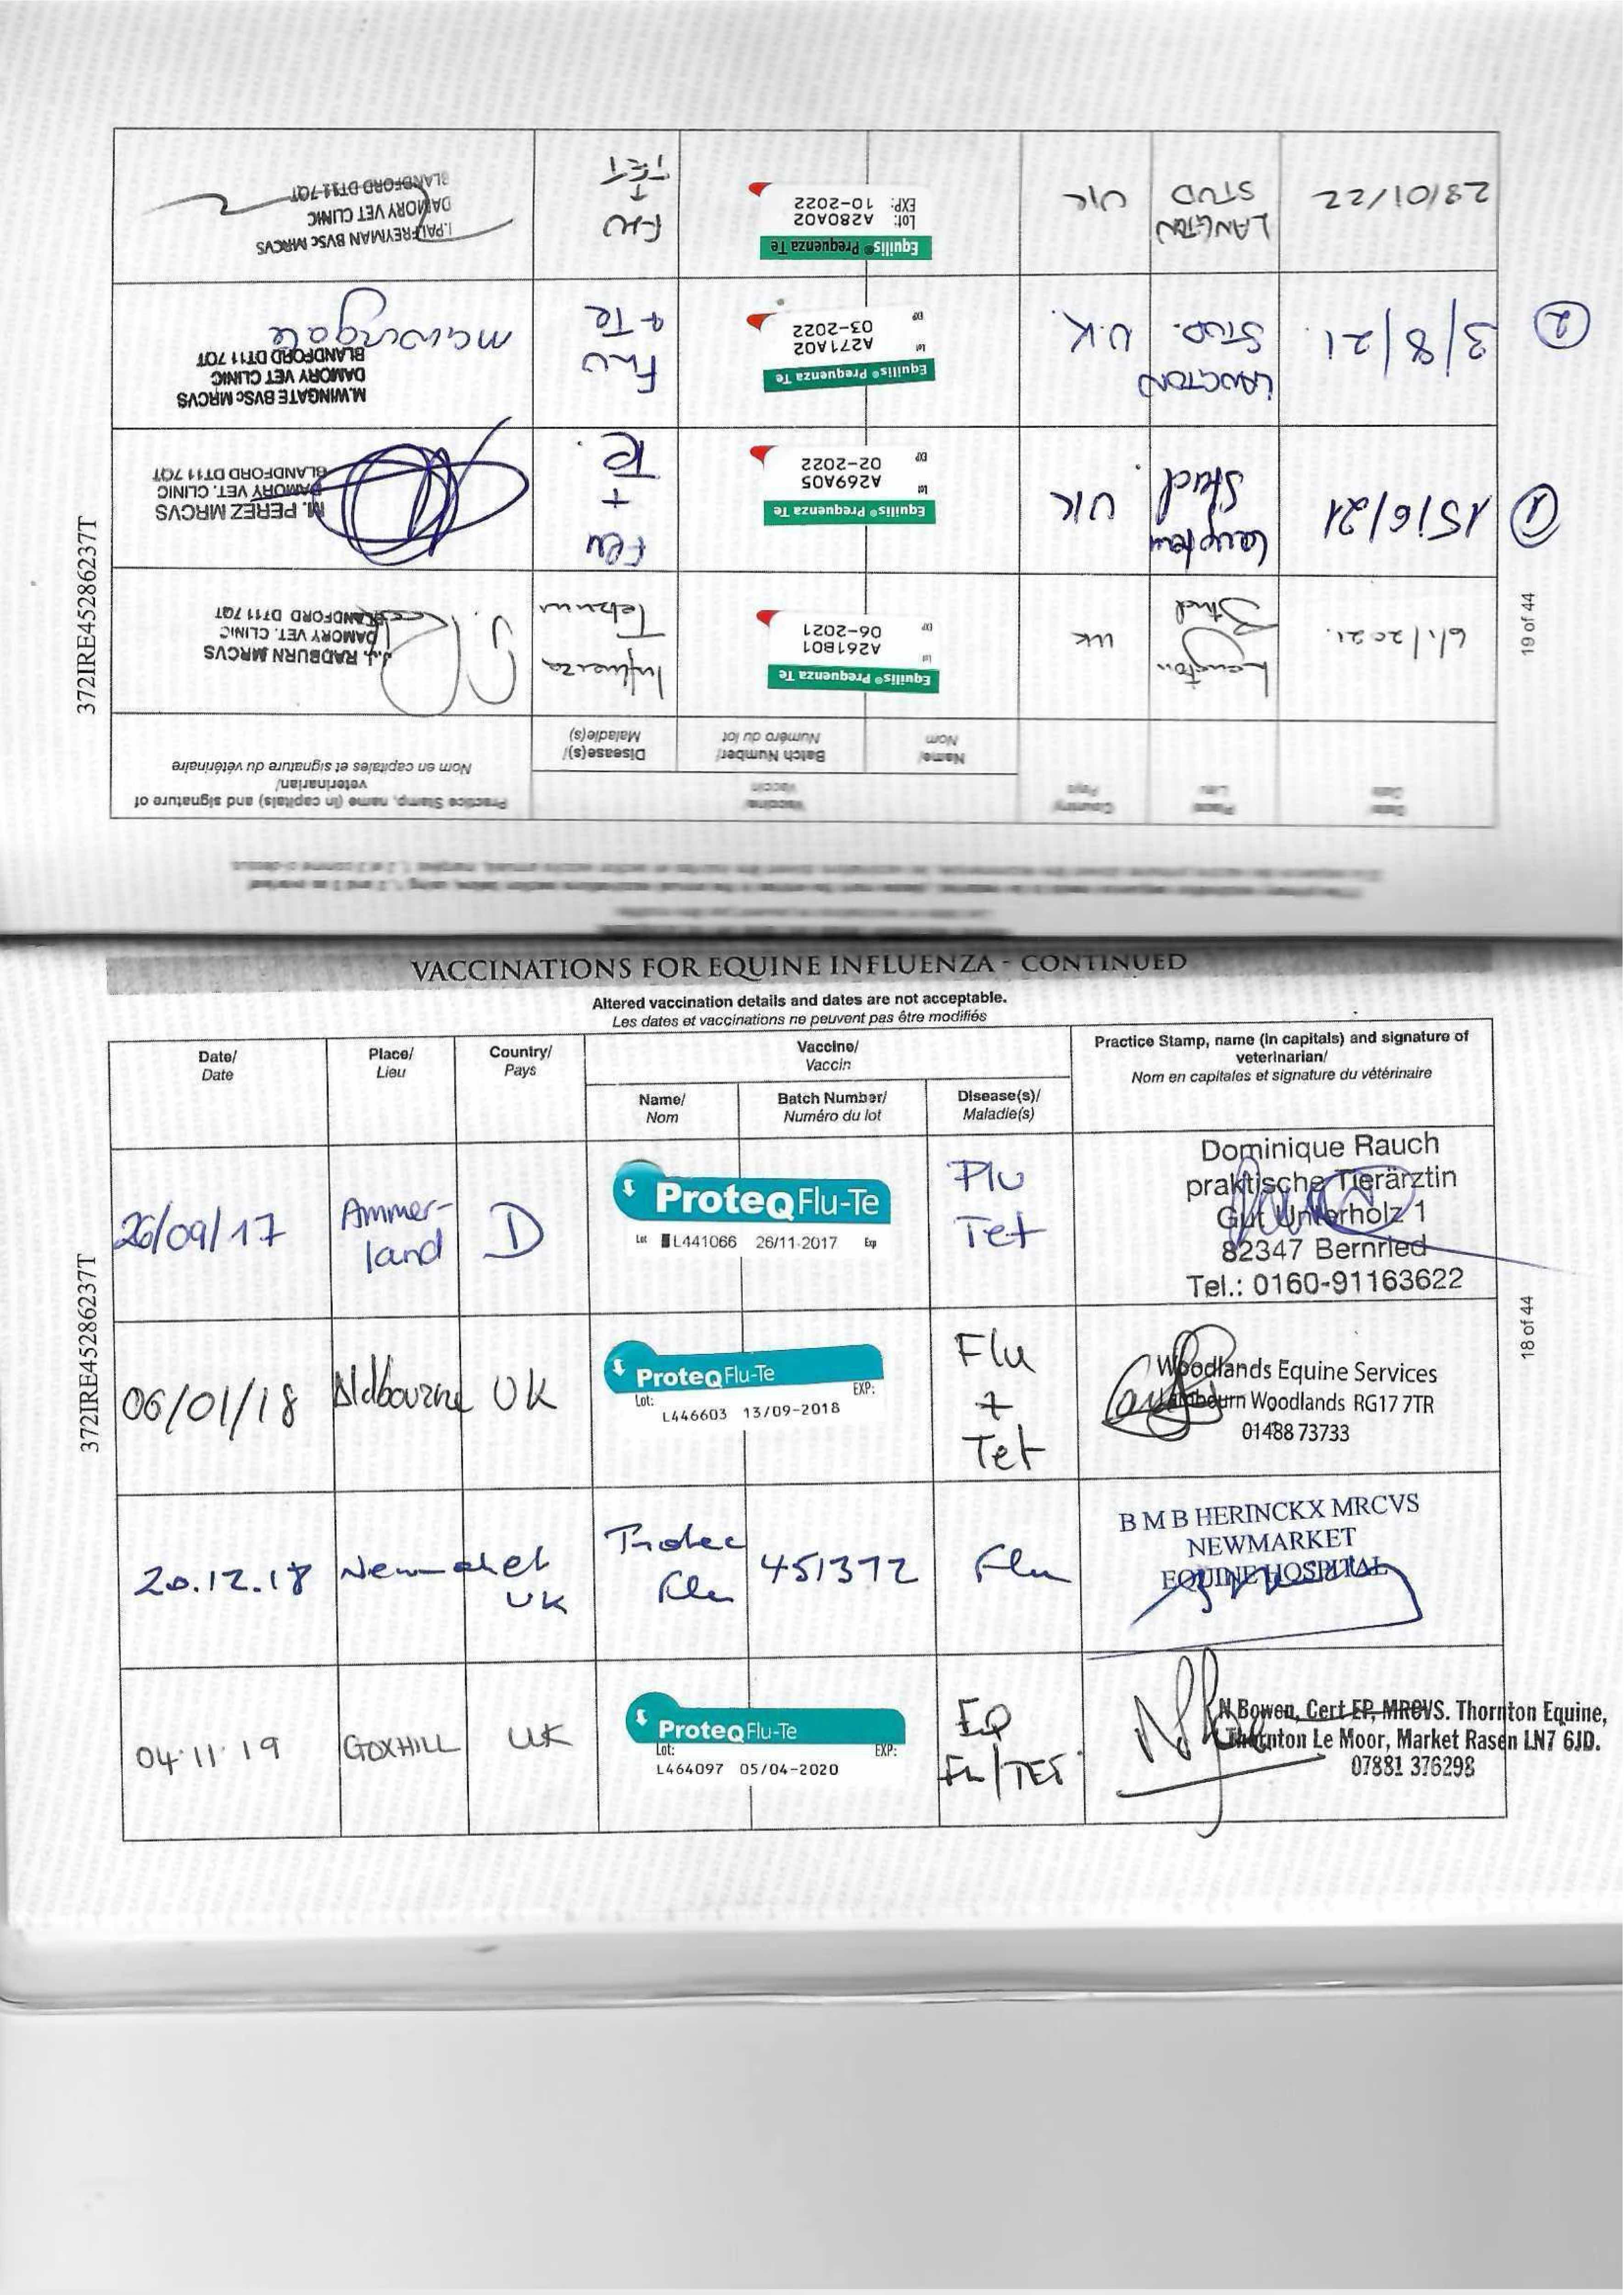 VACCINATIONS FOR EQUINE INFLUENZA - CONTINUED
Altered vaccination details and dates are not acceptable.
Les dates et vaccinations ne peuvent pas être modifiés
Date/
Date
Place/
Lieu
Country/
Pays
Vaccine/
Vaccin
Name/
Nom
Batch Number/
Numéro du lot
Disease(s)/
Maladie(s)
Practice Stamp, name (in capitals) and signature of
veterinarian/
Nom en capitales et signature du vétérinaire
26/09/17
Ammer-
land
D
ProteqFlu-Te
Lot L441066 26/11-2017 Exp
Flu
Tet
Dominique Rauch
praktische Tierärztin
Gut Unterholz 1
82347 Bernried
Tel.: 0160-91163622
06/01/18
Aldbourne
UK
ProteqFlu-Te
Lot: EXP:
L446603 13/09-2018
Flu
+
Tet
Woodlands Equine Services
Lambourn Woodlands RG17 7TR
01488 73733
20.12.18
Newmarket
UK
Proteq
Flu
451372
Flu
B M B HERINCKX MRCVS
NEWMARKET
EQUINE HOSPITAL
04.11.19
GOXHILL
UK
ProteqFlu-Te
Lot: EXP:
L464097 05/04-2020
EQ
Flu/TET
N Bowen, Cert EP, MRCVS. Thornton Equine,
Thornton Le Moor, Market Rasen LN7 6JD.
07881 376298
372IRE452862377T
18 of 44
Date
Date
Place
Lieu
Country
Pays
Vaccine
Vaccin
Name/
Nom
Batch Number/
Numéro du lot
Disease(s)/
Maladie(s)
Practice Stamp, name (in capitals) and signature of
veterinarian/
Nom en capitales et signature du vétérinaire
6/1/2021.
Langton
Stud
UK
Equilis® Prequenza Te
Lot A261B01
EXP 06-2021
Influenza
Tetanus
J.J. RADBURN MRCVS
DAMORY VET. CLINIC
BLANDFORD DT11 7QT
①
15/6/21
Langton
Stud.
UK
Equilis® Prequenza Te
Lot A269A05
EXP 02-2022
Flu
+
Te.
M. PEREZ MRCVS
DAMORY VET. CLINIC
BLANDFORD DT11 7QT
②
3/8/21.
LANGTON
STUD.
U.K
Equilis® Prequenza Te
Lot A271A02
EXP 03-2022
FLU
+ Te
M.WINGATE BVSc MRCVS
DAMORY VET CLINIC
BLANDFORD DT11 7QT
mawingate
28/01/22
LANGTON
STUD
UK
Equilis® Prequenza Te
Lot: A280A02
EXP: 10-2022
FLU
+
TET
I.PALFREYMAN BVSc MRCVS
DAMORY VET CLINIC
BLANDFORD DT11 7QT
372IRE452862377T
19 of 44